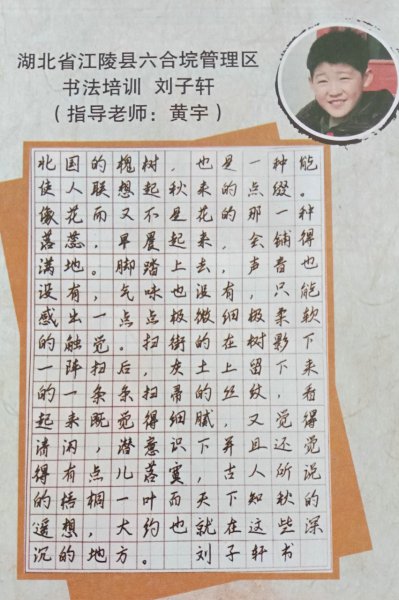 湖北省江陵县六合垸管理区
书法培训 刘子轩
（指导老师：黄宇）
北国的槐树，也是一种能
使人联想起秋来的点缀。
像花而又不是花的那一种
落蕊，早晨起来，会铺得
满地。脚踏上去，声音也
没有，气味也没有，只能
感出一点点极微细极柔软
的触觉。扫街的在树影下
一阵扫后，灰土上留下来
的一条条扫帚的丝纹，看
起来既觉得细腻，又觉得
清闲，潜意识下并且还觉
得有点儿落寞，古人所说
的梧桐一叶而天下知秋的
遥想，大约也就在这些深
沉的地方。 刘子轩书